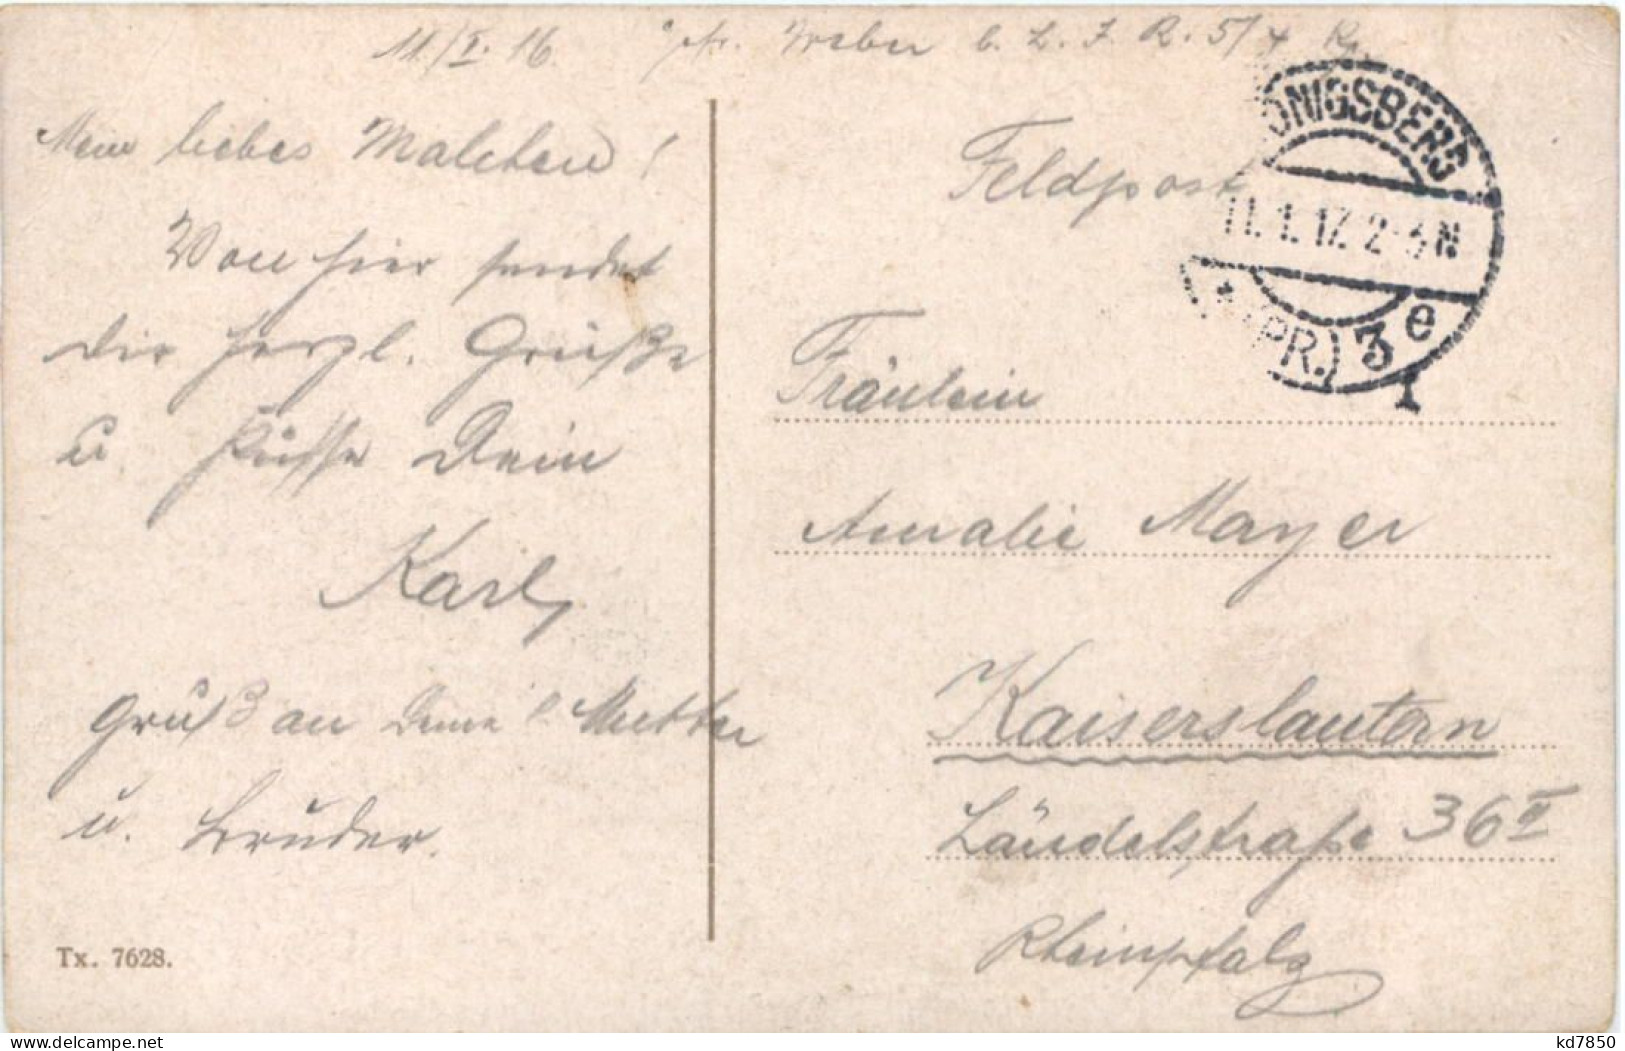 11./I. 16. Gefr. Weber b. L. I. R. 5/4
Mein liebes Malchen!
Von hier sendet
die herzl. Grüße
u. Küsse Dein
Karl
Gruß an Deine l. Mutter
u. Bruder.
Tx. 7628.
Feldpost
KÖNIGSBERG
11.1.17. 2-3 N
* (PR.) 3 e
1
Fräulein
Amalie Mayer
Kaiserslautern
Ländelstraße 36 II
Rheinpfalz
kd7850